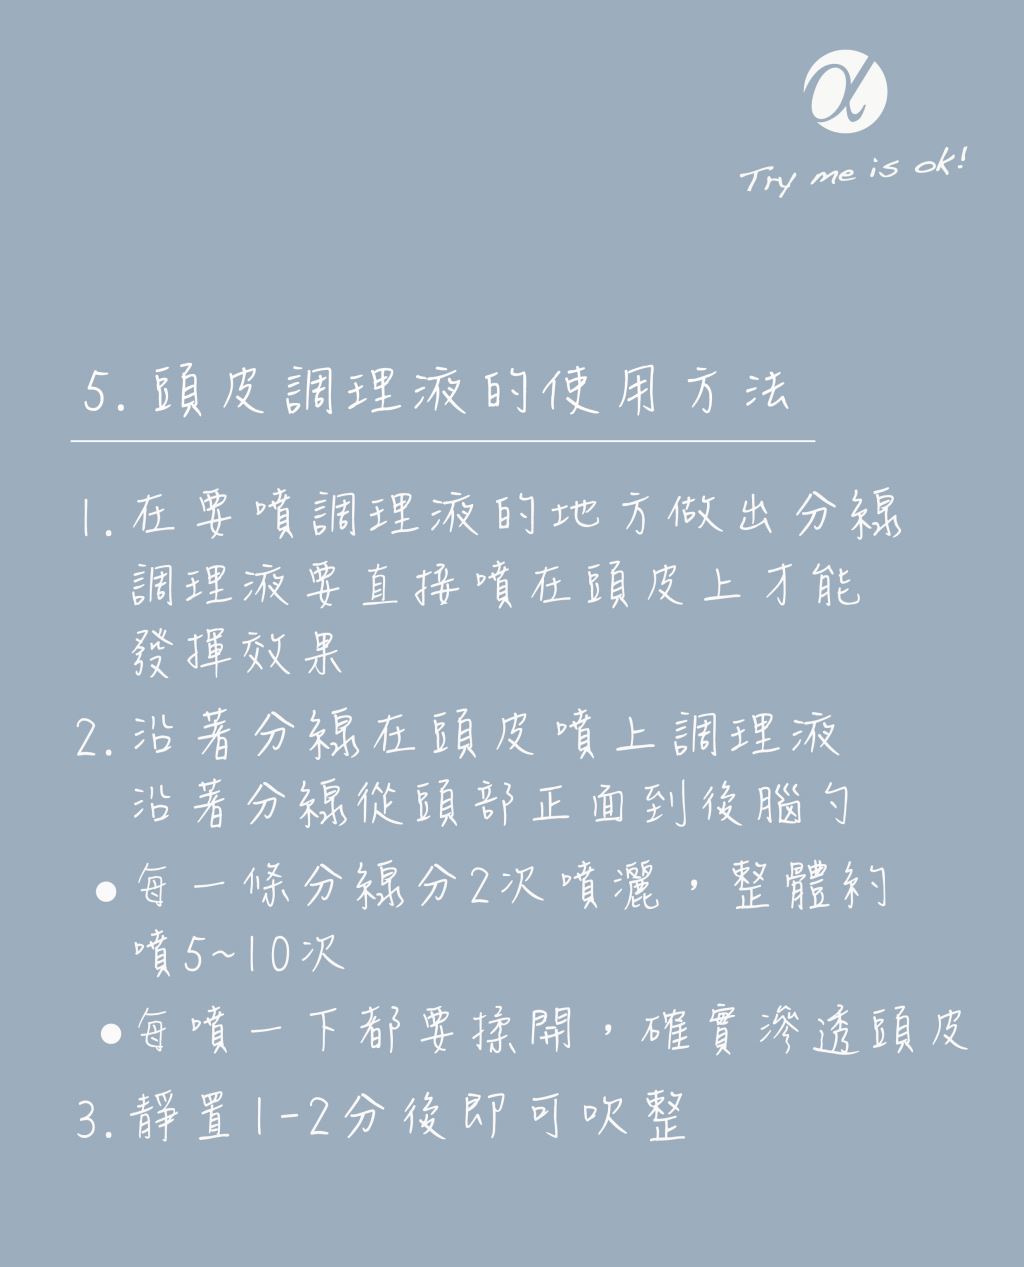 α
Try me is ok!
5. 頭皮調理液的使用方法
1. 在要噴調理液的地方做出分線
調理液要直接噴在頭皮上才能
發揮效果
2. 沿著分線在頭皮噴上調理液
沿著分線從頭部正面到後腦勺
●每一條分線分2次噴灑，整體約
噴5~10次
●每噴一下都要揉開，確實滲透頭皮
3. 靜置1-2分後即可吹整